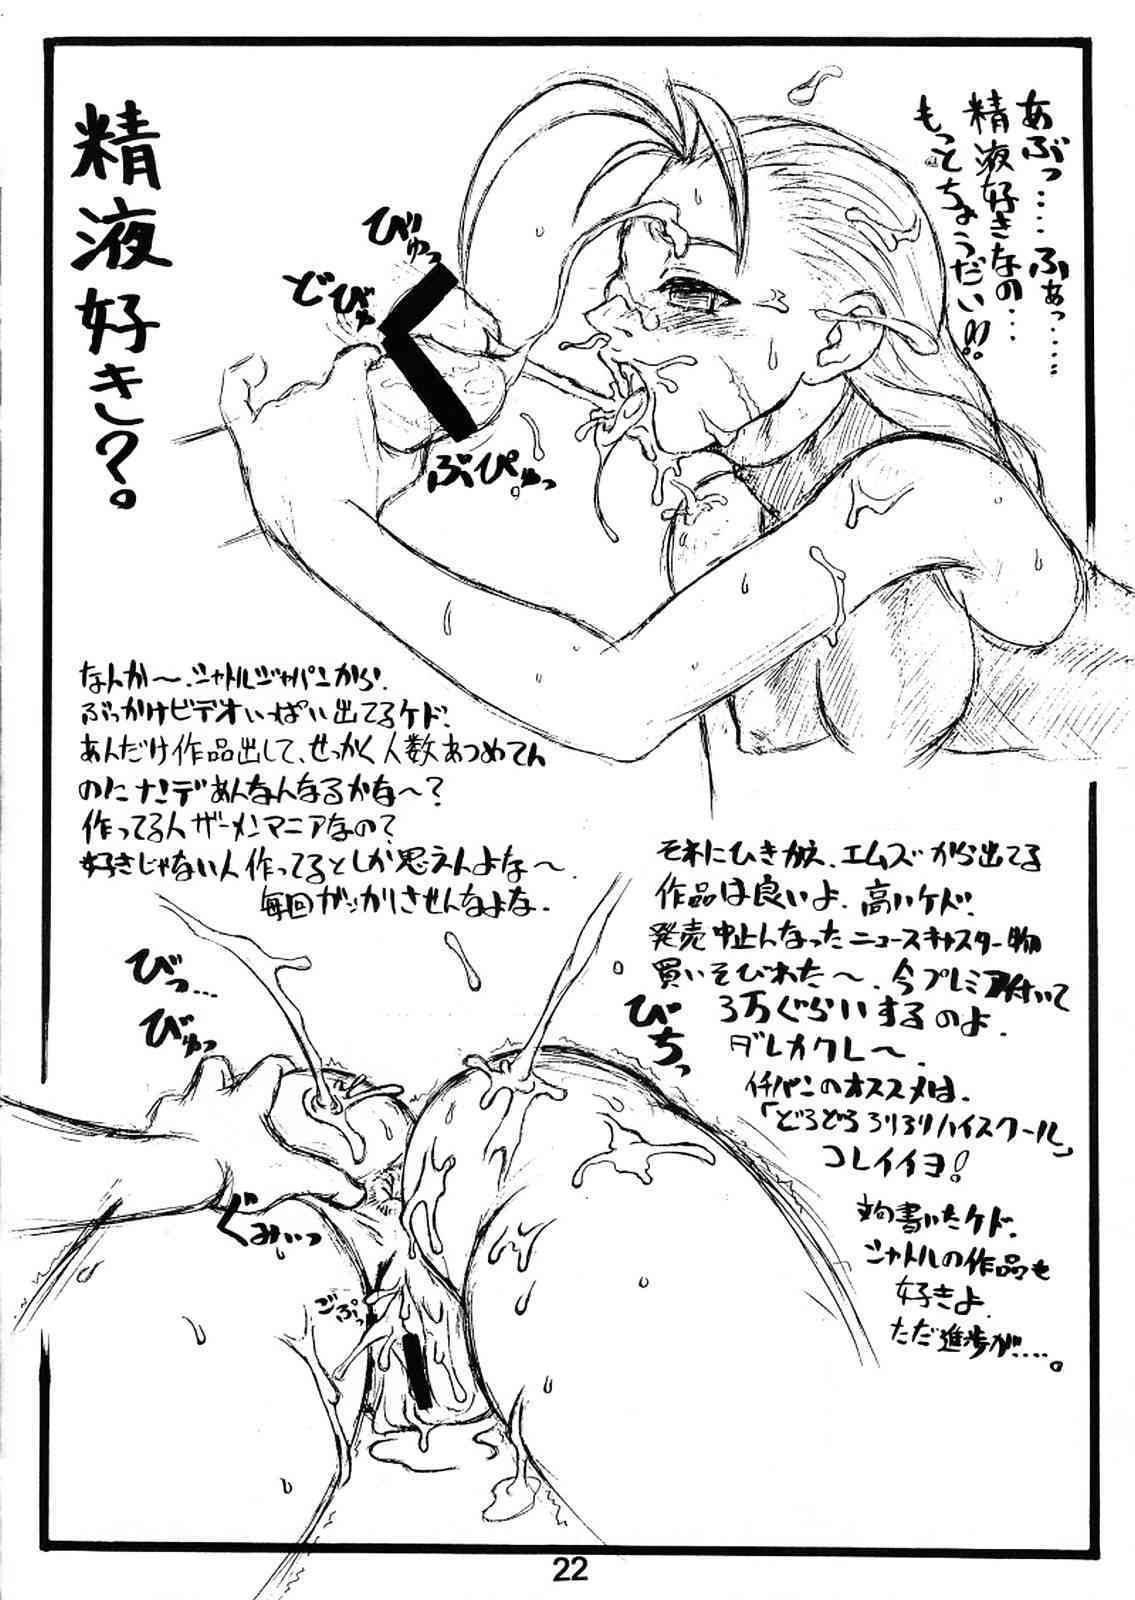 精液好き？。
あぶっ‥‥ふぁっ‥‥‥
精液好きなの‥‥
もっとちょうだい!!
びゅっ
どびゅ
ぶぴゅっ
なんか〜、シャトルジャパンから、
ぶっかけビデオいっぱい出てるケド、
あんだけ作品出して、せっかく人数あつめてん
のにナンデあんなんなるかな〜？
作ってる人ザーメンマニアなの？
好きじゃない人作ってるとしか思えんよな〜、
毎回ガッカリさせんなよな、
それにひきかえ、エムズから出てる
作品は良いよ、高いケド、
発売中止んなったニュースキャスター物
買いそびれた〜、今プレミア付いて
3万ぐらいするのよ、
ダレカクレ〜、
イチバンのオススメは、
「どろどろろりろりハイスクール」
コレイイヨ！
びっ…
びゅっ
びちっ
ぐみぃっ
ごぷっ
書いたケド、
シャトルの作品も
好きよ、
ただ進歩が‥‥。
22